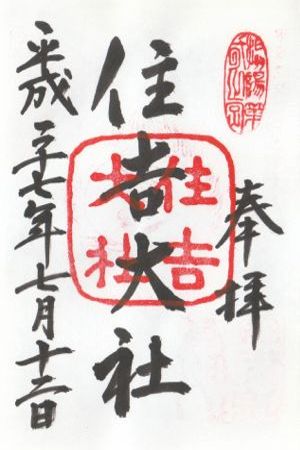 奉拝
住吉大社
住吉
大社
平成二十七年七月十二日